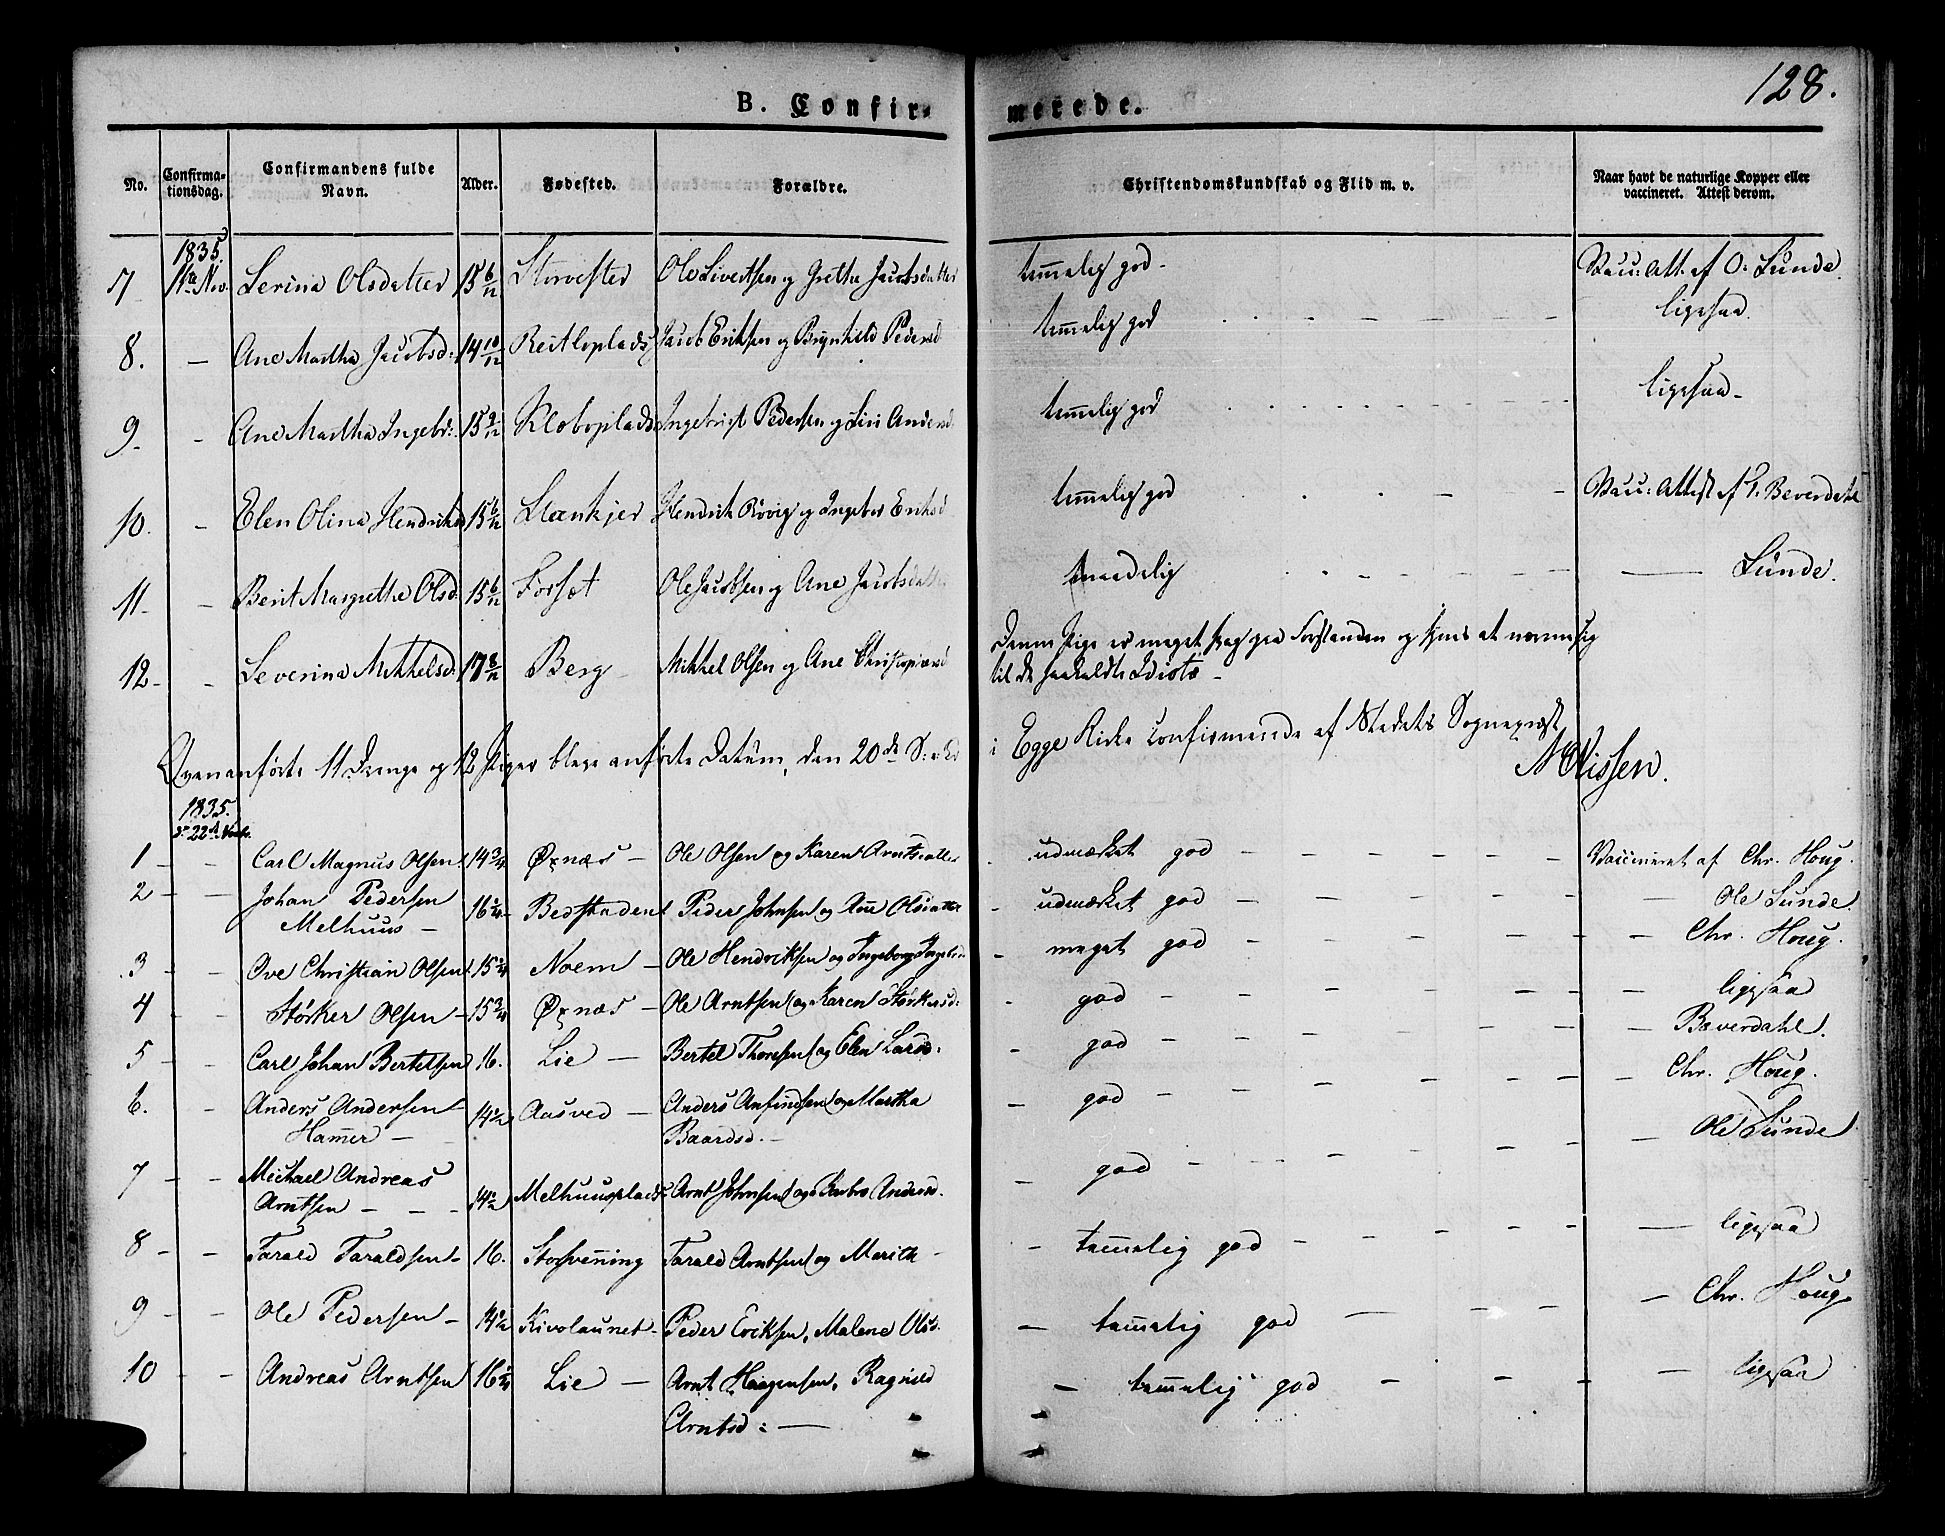 128.
B. Confirmerede.
No. Confirmationsdag. Confirmandens fulde Navn. Alder. Fødested. Forældre. Christendomskundskab og Flid m. v. Naar havt de naturlige Kopper eller vaccineret. Attest derom.
1835.
7 Serina Olsdatter 15 6/12 Storvester Ole Sivertsen og Grethe Jacobsdatter temmelig god - Vacc: Att. af O. Sunde.
8. - Ane Martha Jacobsd: 14 10/12 Reitloplads Jacob Eriksen og Brynhild Pedersd temmelig god ligesaa
9 - Ane Martha Ingebr: 15 9/12 Ingebrigt Pedersen og Siri Andersd temmelig god ligesaa -
10. - Elen Olina Hendriksd 15 6/12 Steenkjer Hendrik og Ingebor Eriksd temmelig god Vacc: Attest af Beverdahl
11 - Berit Margrethe Olsd. 15 6/12 Forset Ole Jacobsen og Ane Jacobsdatter maadelig - Sunde.
12 - Severina Mikkelsd. 17 8/12 Berg Mikkel Olsen og Ane Denne Pige er meget svag paa Forstanden og synes at nærme sig
til de saakaldte Idiotæ -
Ovenanførte 11 Drenge og 12 Piger bleve anførte Datum, den 20de S: e: Tr i Egge Kirke confirmerede af Stedets Sognepræst
Nissen.
1835.
22d Novbr.
1 - - Carl Magnus Olsen 14 3/4 Øxnæs - Ole Olsen og Karen Arntsdatter - udmærket god - Vaccineret af Chr. Houg.
2 - - Johan Pedersen
Melhuus - 16 1/4 Bedstaden Peder Johnsen og Ane Olsdatter - udmærket god - Ole Sunde.
3 - - Ove Christian Olsen 15 Noem - Ole Hendriksen og Ingeborg - meget god - Chr. Houg.
4 - - Størker Olsen - 15 3/4 Øxnæs - Ole Arntsen og Karen Størkersd: - god - ligesaa
5 - - Carl Johan Bertelsen 16. Lie - Bertel Thoresen og Elen Larsd: - god - Bæverdahl.
6. - Anders Andersen
Hamer - 14 1/2 Aasved - Anders Anfindsen og Martha
Baardsd. - god - Chr. Houg.
7 - - Michael Andreas
Arntsen - - - 14 1/2 Melhuusplads Arnt Johnsen og Andersd. - god - Ole Sunde
8 - - Tarald Taraldsen - 16. Storvening Tarald Arntsen og Marith - temmelig god - ligesaa
9 - - Ole Pedersen - 14 1/2 Kivolaunet - Peder Eriksen, Malene Olsd. - temmelig god - Chr. Houg.
10 - - Andreas Arntsen 16 1/4 Lie - Arnt Haagensen, Ragnild
Arntsd: - - temmelig god - ligesaa